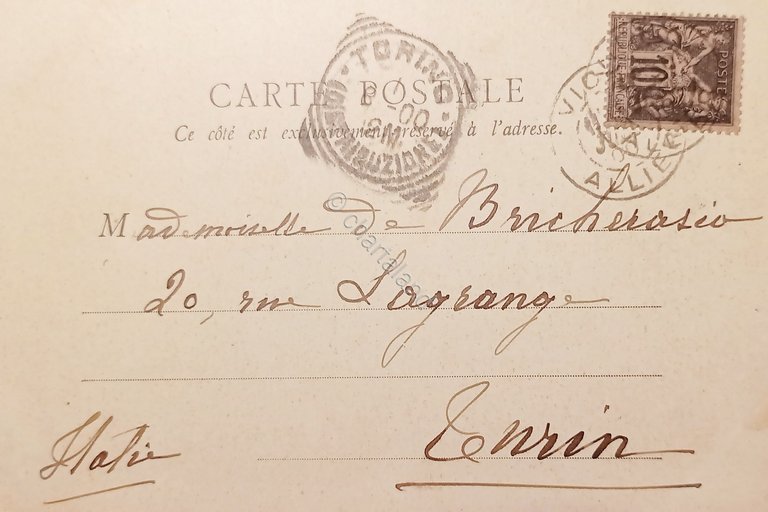 CARTE POSTALE
Ce côté est exclusivement réservé à l'adresse.
TORINO
DISTRIBUZIONE
POSTES
10
ALLIER
Mademoiselle De Bricherasio
20, rue Lagrange
Turin
Italie